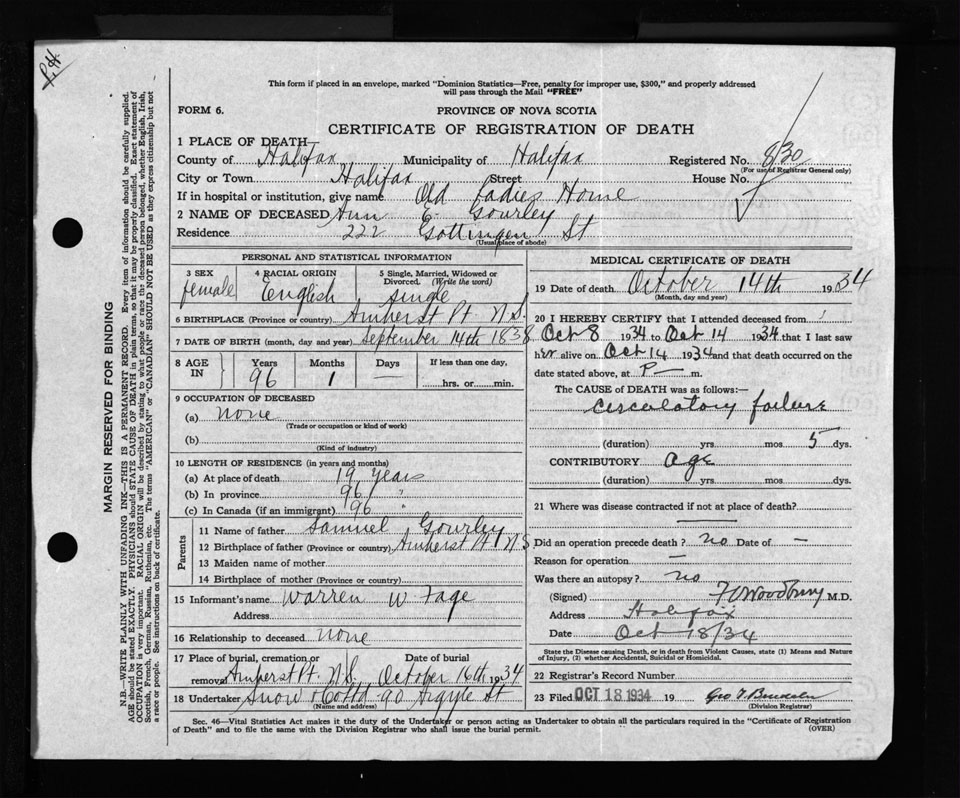 P.H.
This form if placed in an envelope, marked "Dominion Statistics—Free, penalty for improper use, $300," and properly addressed
will pass through the Mail "FREE"
FORM 6.
PROVINCE OF NOVA SCOTIA
CERTIFICATE OF REGISTRATION OF DEATH
1 PLACE OF DEATH
County of Halifax Municipality of Halifax Registered No. 830
(For use of Registrar General only)
City or Town Halifax Street House No.
If in hospital or institution, give name Old Ladies Home
2 NAME OF DECEASED Ann E. Gourley
Residence 222 Gottingen St
(Usual place of abode)
PERSONAL AND STATISTICAL INFORMATION
3 SEX female
4 RACIAL ORIGIN English
5 Single, Married, Widowed or Divorced. (Write the word) single
6 BIRTHPLACE (Province or country) Amherst Pt. N.S.
7 DATE OF BIRTH (month, day and year) September 14th 1838
8 AGE IN Years 96 Months 1 Days — If less than one day, hrs. or min.
9 OCCUPATION OF DECEASED
(a) none
(Trade or occupation or kind of work)
(b)
(Kind of industry)
10 LENGTH OF RESIDENCE (in years and months)
(a) At place of death 19 years
(b) In province 96 "
(c) In Canada (if an immigrant) 96
Parents
11 Name of father Samuel Gourley
12 Birthplace of father (Province or country) Amherst Pt N.S
13 Maiden name of mother
14 Birthplace of mother (Province or country)
15 Informant's name Warren W Fage
Address
16 Relationship to deceased none
17 Place of burial, cremation or removal Amherst Pt. N.S. Date of burial October 16th 1934
18 Undertaker Snow & Co Ltd 90 Argyle St
(Name and address)
MEDICAL CERTIFICATE OF DEATH
19 Date of death October 14th 1934
(Month, day and year)
20 I HEREBY CERTIFY that I attended deceased from
Oct 8 1934 to Oct 14 1934 that I last saw
her alive on Oct 14 1934 and that death occurred on the
date stated above, at P — m.
The CAUSE OF DEATH was as follows:—
Circulatory failure
(duration) yrs. mos. 5 dys.
CONTRIBUTORY age
(duration) yrs. mos. dys.
21 Where was disease contracted if not at place of death?
Did an operation precede death? no Date of —
Reason for operation —
Was there an autopsy? no
(Signed) Woodbury M.D.
Address Halifax
Date Oct 18/34
State the Disease causing Death, or in death from Violent Causes, state (1) Means and Nature
of Injury, (2) whether Accidental, Suicidal or Homicidal.
22 Registrar's Record Number
23 Filed OCT 18 1934 19
(Division Registrar)
Sec. 46—Vital Statistics Act makes it the duty of the Undertaker or person acting as Undertaker to obtain all the particulars required in the "Certificate of Registration
of Death" and to file the same with the Division Registrar who shall issue the burial permit. (OVER)
MARGIN RESERVED FOR BINDING
N.B.—WRITE PLAINLY WITH UNFADING INK—THIS IS A PERMANENT RECORD. Every item of information should be carefully supplied.
AGE should be stated EXACTLY. PHYSICIANS should STATE CAUSE OF DEATH in plain terms, so that it may be properly classified. Exact statement of
OCCUPATION is very important. RACIAL ORIGIN will be described by stating to what people or race the deceased person belonged, whether English, Irish,
Scottish, French, German, Russian, Ruthenian, etc. The terms "AMERICAN" or "CANADIAN" SHOULD NOT BE USED as they express citizenship but not
a race or people. See instructions on back of certificate.